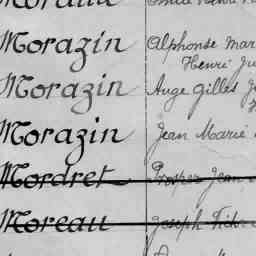 Morazin Alphonse Mar
Henri Ju
Morazin Ange Gilles J
Morazin Jean Marie
Mordret Prosper Jean
Moreau Joseph